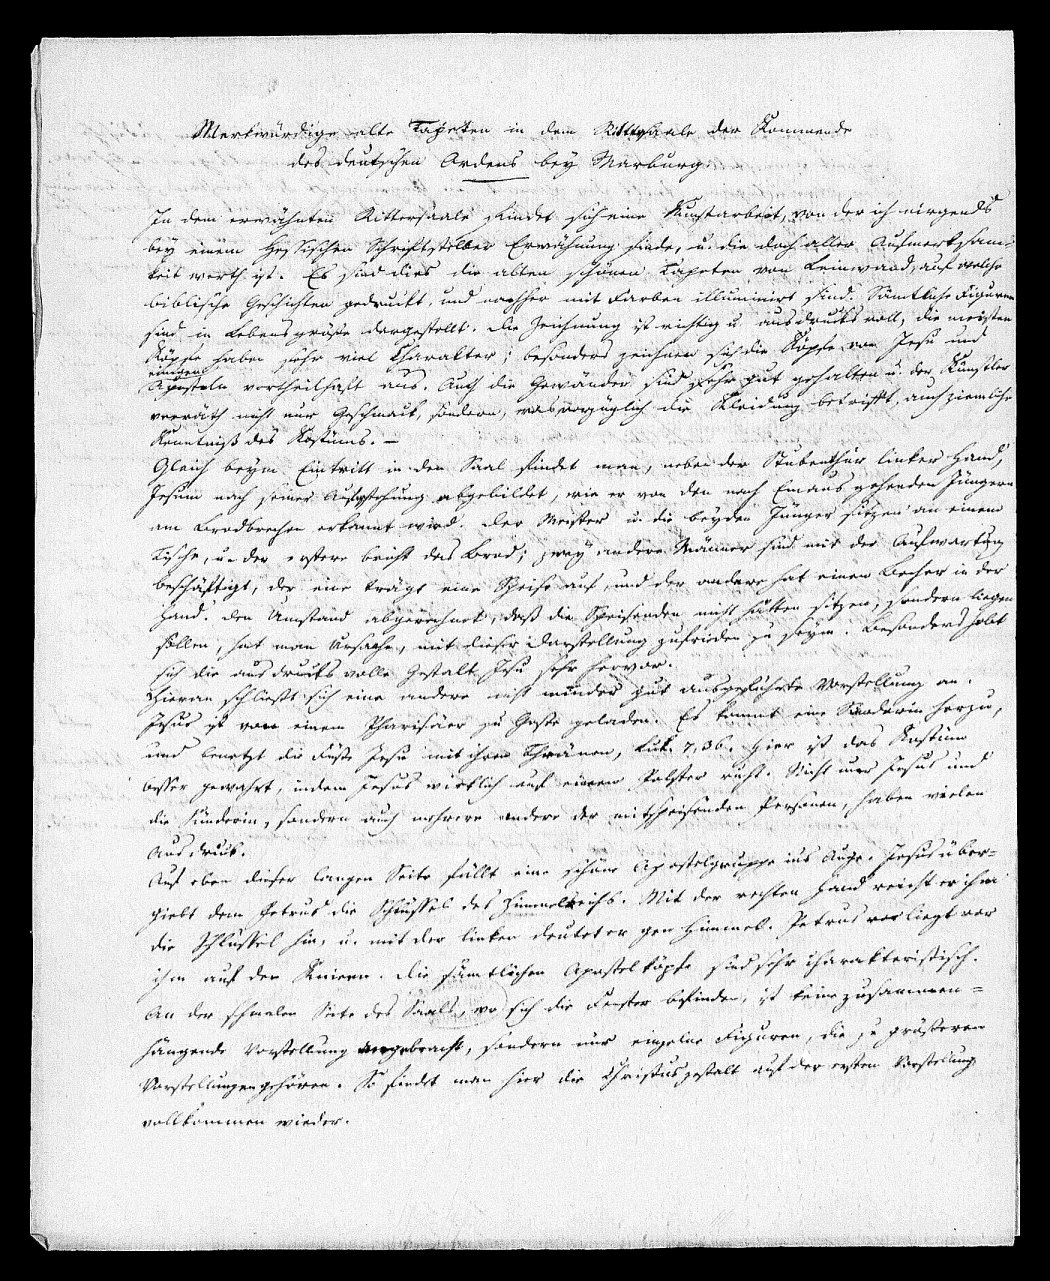 Merkwürdige alte Tapeten in dem Rittersaale der Kommende
des deutschen Ordens bey Marburg.
In dem erwähnten Rittersaale findet sich eine Kunstarbeit, von der ich nirgends
bey einem Hessischen Schriftsteller Erwähnung finde, u. die doch aller Aufmerksam-
keit werth ist. Es sind dies die alten schönen Tapeten von Leinwand, auf welche
biblische Geschichten gedruckt, und nachher mit Farben illuminirt sind. Sämtliche Figuren
sind in Lebensgröße dargestellt. Die Zeichnung ist richtig u. ausdrucksvoll, die meisten
Köpfe haben sehr viel Charakter; besonders zeichnen sich die Köpfe von Jesu und
einigen
Aposteln vortheilhaft aus. Auch die Gewänder sind sehr gut gehalten u. der Künstler
verräth nicht nur Geschmack, sondern, was vorzüglich die Kleidung betrifft, auch ziemliche
Kenntniß des Kostüms. —
Gleich beym Eintritt in den Saal findet man, neben der Stubenthür linker Hand,
Jesum nach seiner Auferstehung abgebildet, wie er von den nach Emaus gehenden Jüngern
am Brodbrechen erkannt wird. Der Meister u. die beyden Jünger sitzen an einem
Tische, u. der erstere bricht das Brod; zwey andere Männer sind mit der Aufwartung
beschäftigt, der eine trägt eine Speise auf, und der andere hat einen Becher in der
Hand. Den Umstand abgerechnet, daß die Speisenden nicht hätten sitzen, sondern liegen
sollen, hat man Ursache, mit dieser Darstellung zufrieden zu seyn. Besonders hebt
sich die ausdrucksvolle Gestalt Jesu sehr hervor.
Hieran schließt sich eine andere nicht minder gut ausgeführte Vorstellung an.
Jesus ist von einem Pharisäer zu Gaste geladen. Es kommt eine Sünderin herzu,
und benetzt die Füße Jesu mit ihren Thränen, Luk. 7, 36. Hier ist das Kostüm
besser gewahrt, indem Jesus wirklich auf einem Polster ruht. Nicht nur Jesus und
die Sünderin, sondern auch mehrere andere der mitspeisenden Personen, haben vielen
Ausdruck.
Auf eben dieser langen Seite fällt eine schöne Apostelgruppe ins Auge. Jesus über-
giebt dem Petrus die Schlüssel des Himmelreichs. Mit der rechten Hand reicht er ihm
die Schlüssel hin, u. mit der linken deutet er gen Himmel. Petrus liegt vor
ihm auf den Knieen. Die sämtlichen Apostelköpfe sind sehr charakteristisch.
An der schmalen Seite des Saals, wo sich die Fenster befinden, ist keine zusammen-
hängende Vorstellung angebracht, sondern nur einzelne Figuren, die zu größeren
Vorstellungen gehören. So findet man hier die Christusgestalt auf der ersten Vorstellung
vollkommen wieder.